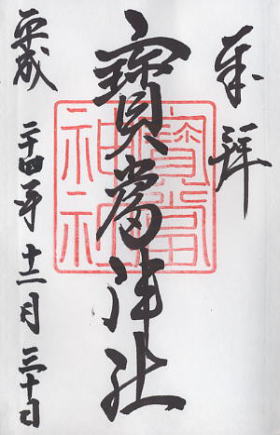 奉拝
寳當神社
寳當
神社
平成二十四年十二月三十日